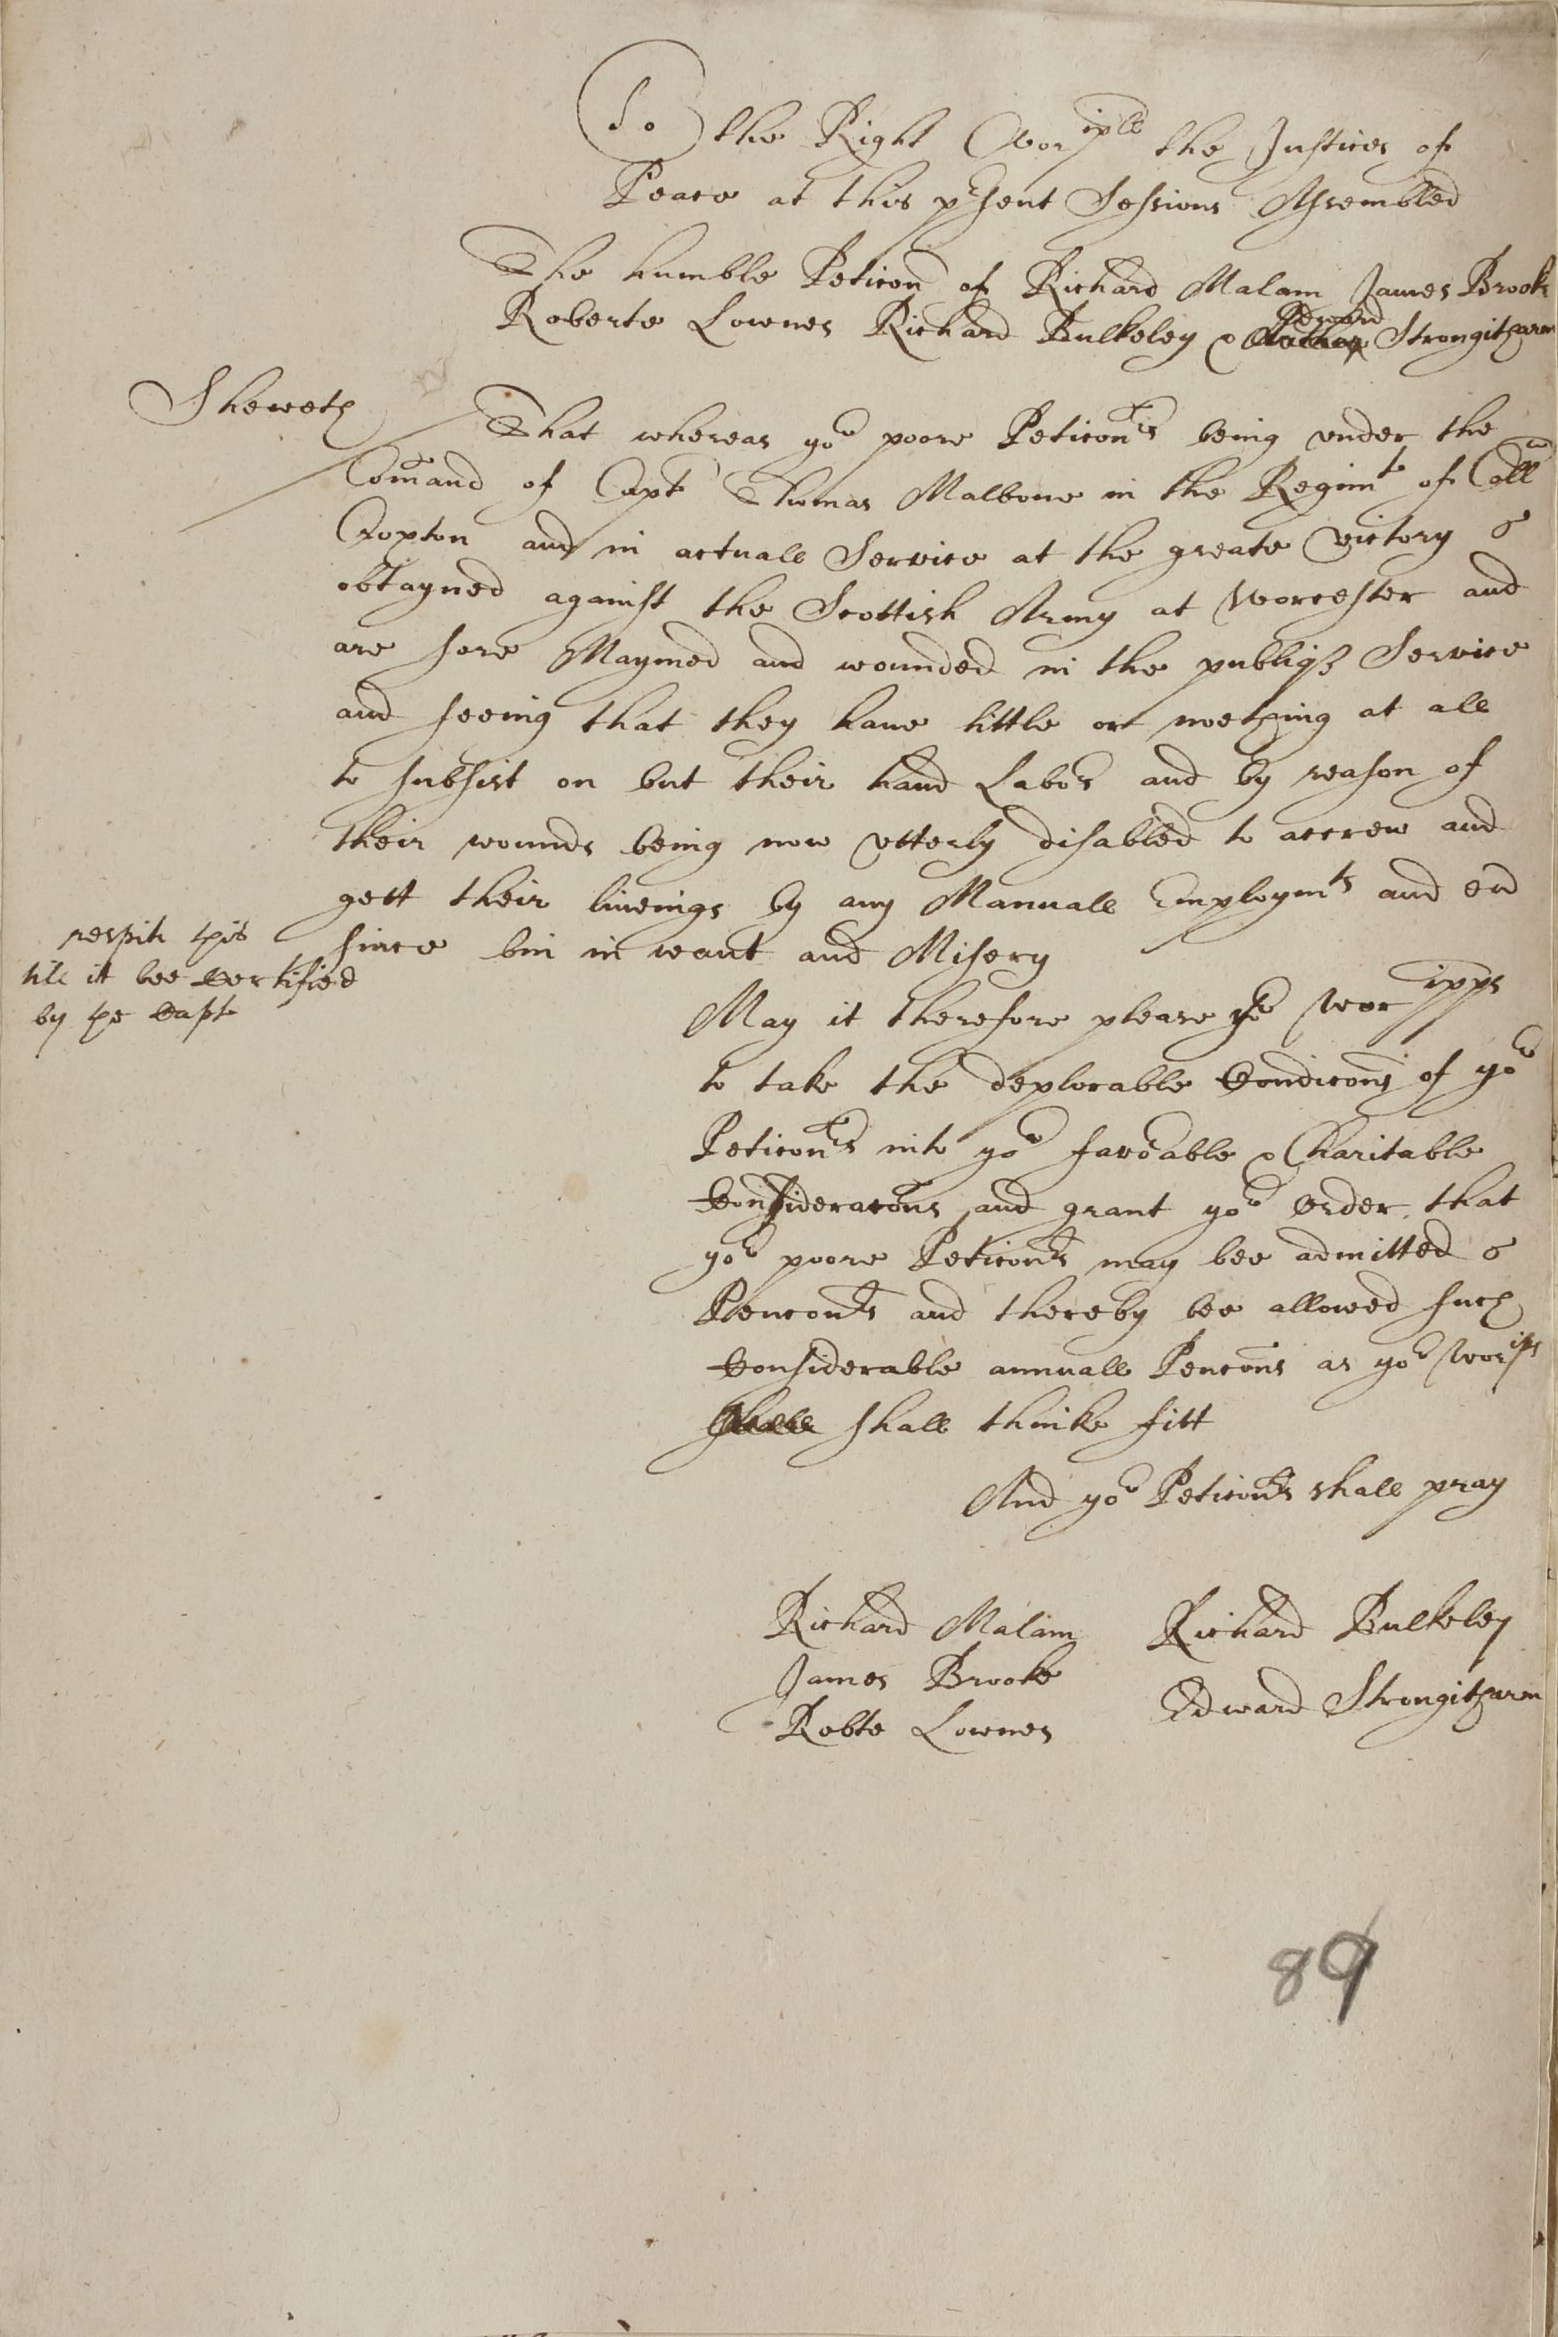 To the Right Wor:ipll the Justices of
Peace at this p~sent Sessions Assembled
The humble Peticon of Richard Malam James Brooke
Roberte Lownes Richard Bulkeley & Edward Strongitharm
Sheweth
That whereas yor poore Peticon~rs being vnder the
Com~and of Capt Thomas Malbone in the Regimt of Coll
Croxton and in actuall Service at the greate victory
obtayned against the Scottish Army at Worcester and
are sore Maymed and wounded in the publiq3 Service
and seeing that they haue little or noething at all
to subsist on but their hand Labors and by reason of
their wounds being now vtterly disabled to accrew and
gett their liueings by any Manuall Employmts and
since bin in want and Misery
respitt this
till it bee certified
by the Capt
May it therefore please yor Woripps
to take the deplorable Condicons of yor
Peticon~rs into yor favorable & Charitable
Consideracons and grant yor Order that
yor poore Peticonrs may bee admitted
Penconrs and thereby bee allowed such
Considerable annuall Pencons as yor Worips
shall shall thinke fitt
And yor Peticonrs shall pray
Richard Malam Richard Bulkeley
James Brooke Edward Strongitharm
Robte Lownes
89